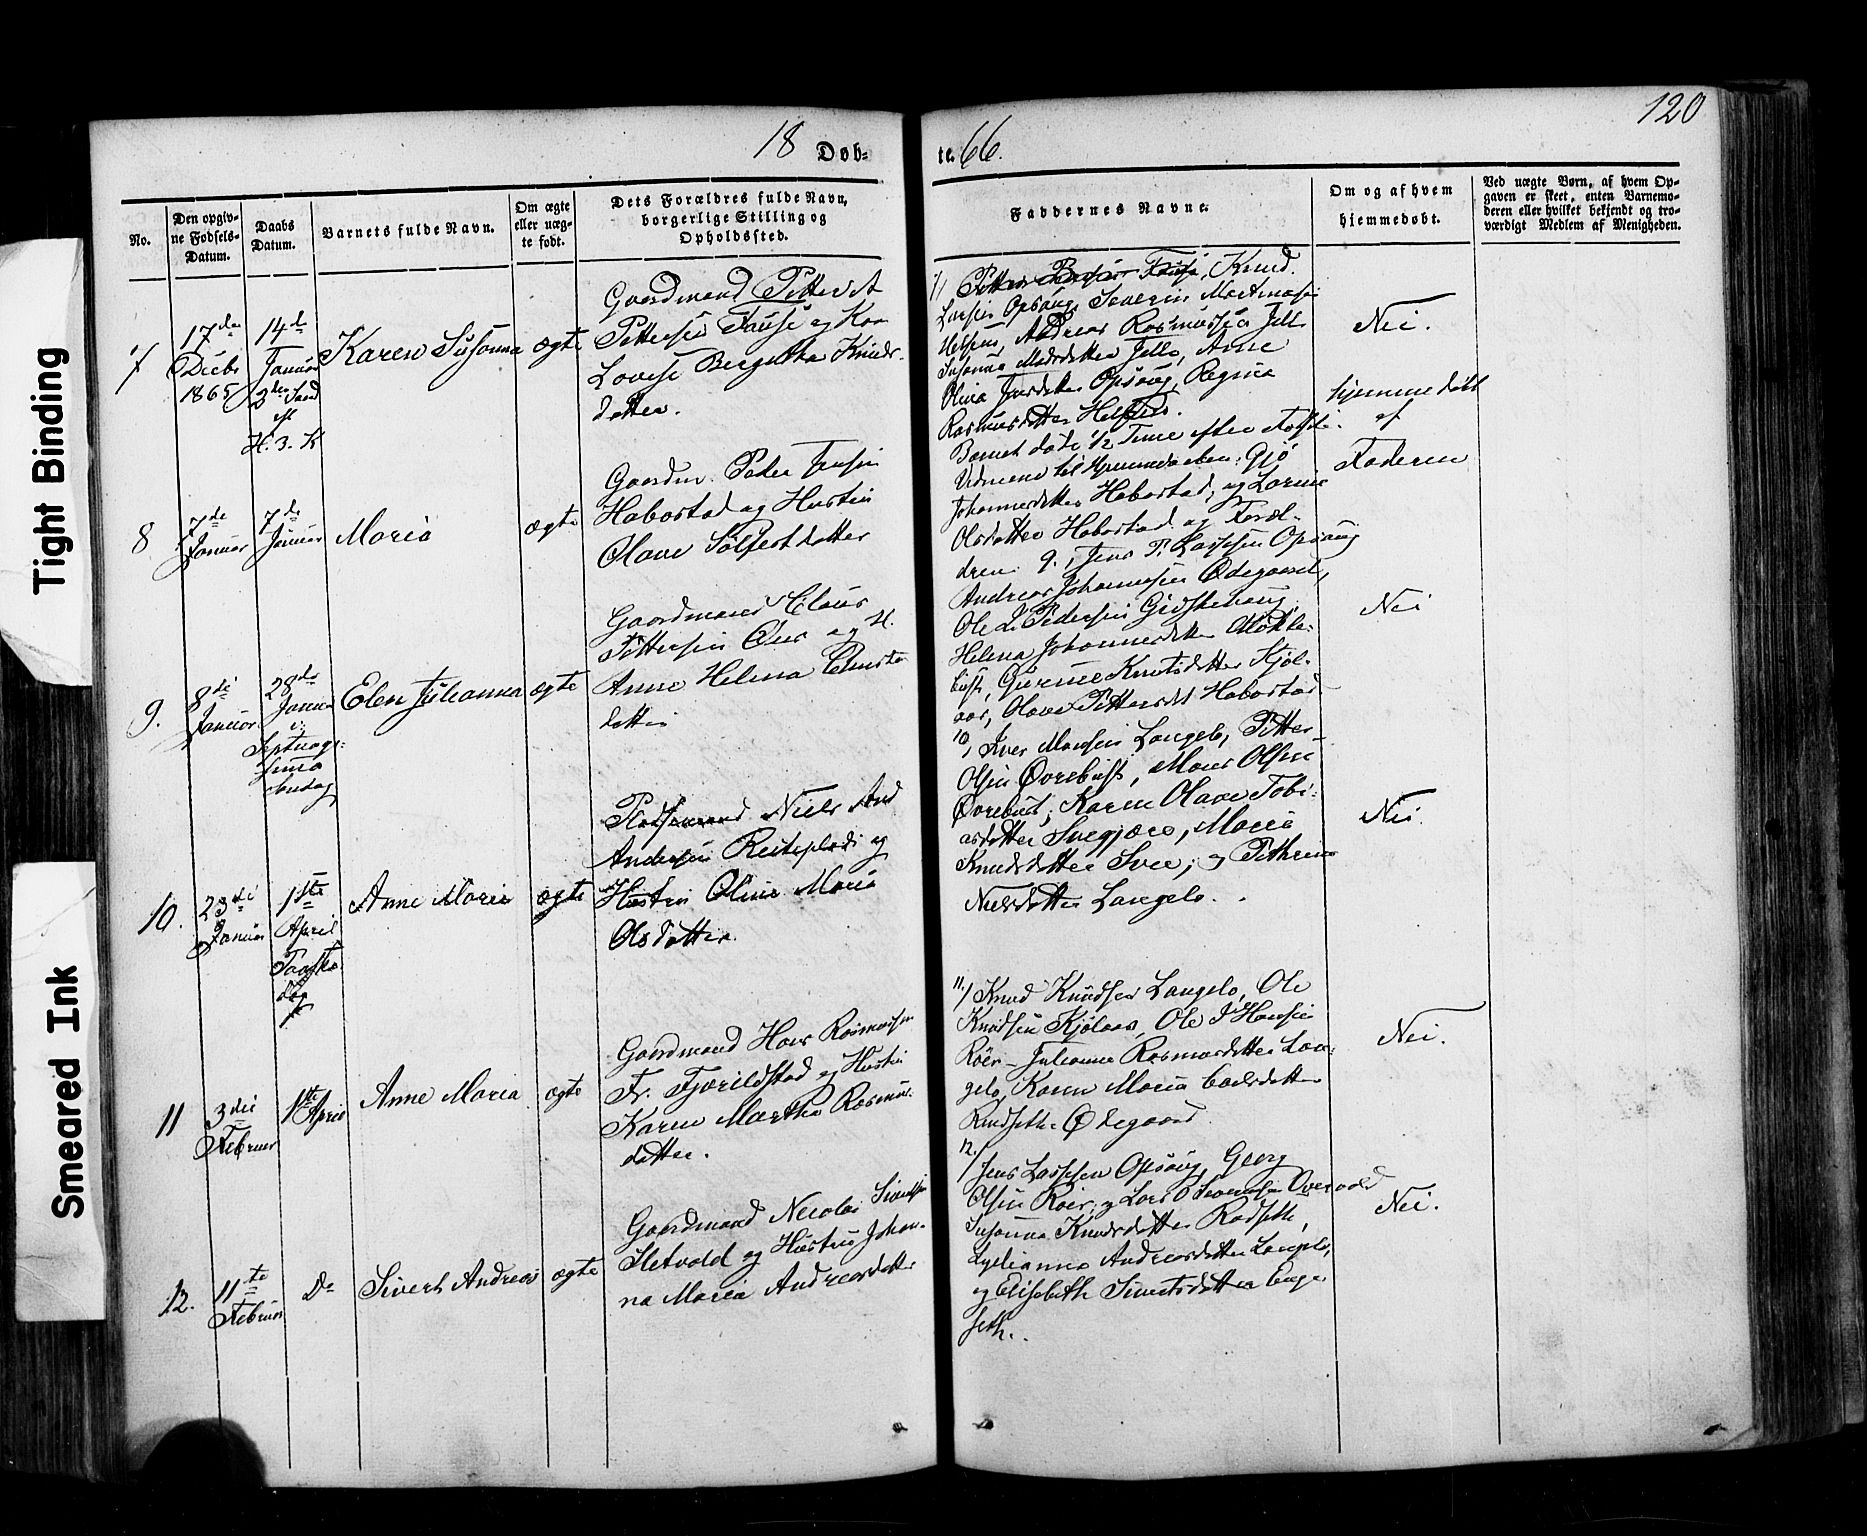 120
18 Döb-
te. 66.
No.
Den opgiv-
ne Fødsels-
Datum.
Daabs
Datum.
Barnets fulde Navn.
Om ægte
eller uæg-
te født.
Dets Forældres fulde Navn,
borgerlige Stilling og
Opholdssted.
Faddernes Navne.
Om og af hvem
hjemmedöbt.
Ved uægte Børn, af hvem Op-
gaven er skeet, enten Barnemo-
deren eller hvilket bekjendt og tro-
værdigt Medlem af Menigheden.
7
17de
Decbr
1865
14de
Januar
2den Sønd
ef
H. 3. K
Karen Susanna
ægte
Gaardmand Petter A
Pettersen
Lovise Bergitha Knuds-
datter.
7/ Petter Knud
Larsen Opsaug, Severin Martinusen
Andreas Rasmussen
Susanna Madsdatter Anne
Olina Opsaug, Regina
Rasmusdatter
Nei.
8
7de
Januar
7de
Januar
Maria
ægte
Gaardm. Peder Jensen
Habostad og Hustru
Olave Sölfestdatter
Barnet døde 1/2 Time efter
Vidnerne til Hjemmedaaben: Gjø
Johannesdatter Habostad, og Lorine
Olsdatter Habostad og Foræl-
drene.
hjemmedøbt
af
Faderen
9.
8de
Januar
28de
Januar
Septuage-
sima
Søndag
Elen Julianna
ægte
Gaardmand Claus
Pettersen og H.
Anne Helena
datter
9., Jens P. Larssen Opsaug
Andreas Johannesen Ødegaard,
Ole L. Pedersen Gidskehaug,
Helena Johannesdatter Mokke-
bust, Gurine Knutsdatter Kjøl-
aas, Olave Pettersdt Habostad
Nei
10.
23de
Januar
1ste
April
Paaske
dag
Anne Maria
ægte
Pladsmand Niels And
Andersen Reiteplads og
Hustru Oline Maria
Olsdatter.
10, Iver Monsen Langelo, Petter
Olsen Øvrebust, Mons Olsen
Øvrebust, Karen Olave Tobi-
asdatter Maria
Knudsdatter Svee, og Pethrine
Nielsdatter Langelo.
Nei.
11
3die
Februar
1ste April
Anne Maria
ægte
Gaardmand Hans Rasmussen
Fr. Fjørildstad og Hustru
Karen Martha Rasmus-
datter.
11./ Knud Knudsen Langelo, Ole
Knudsen Kjølaas, Ole J Hansen
Röer- Julianne Rasmusdatter Lan-
gelo, Karen Maria Carlsdatter
Ødegaard.
Nei.
12.
11te
Februar
Do
Sivert Andreas
ægte
Gaardmand Nicolai Sivertsen
Sletvold og Hustru Johan-
na Maria Andreasdatter
12./ Jens Larssen Opsaug, Georg
Olsen Röer, og Lars O Overvold
Susanna Knudsdatter Rødseth,
Andreasdatter Langelo,
og Elisabeth Sivertsdatter Enge-
seth.
Nei.
Tight Binding
Smeared Ink